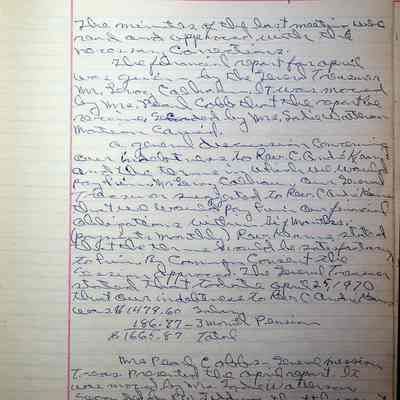 The minutes of the last meeting was
read and approved with the
necessary Corrections.
The financial report for april
was given by the General Treasurer
Mr. Leroy Calhoun. It was moved
by Mrs. Pearl Cobb that the report be
received, Seconded by Mrs. Watterson
Motion Carried.
a general discussion Concerning
our indebtness to Rev. C. André Kans
and the terms in which we would
pay him. Mr. Leroy Calhoun our General
Treasurer suggested to Rev. C. André
that we would pay him our financial
obligations within Six Months.
Rev. Kans stated
that the terms would be satisfactory
to him. By Common Consent the
Session approved. The General Treasurer
stated that to date april 25, 1970
that our indebtness to Rev. C. André Kans
was $1478.60 Salary
186.87 - 3 month Pension
$1665.87 Total
Mrs. Pearl Cobbs - General mission
Treas. Presented the april report. It
was moved by Mrs. Watterson
Seconded by